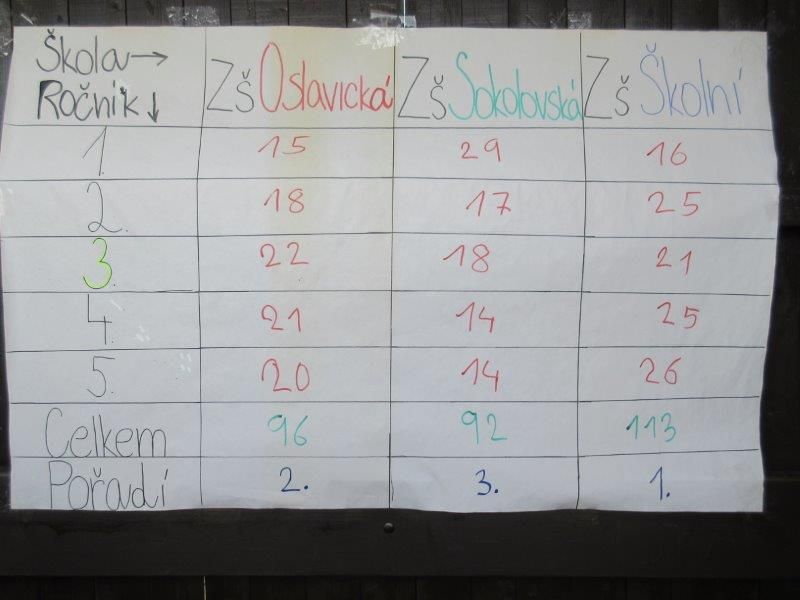 Škola→ ZŠ Oslavická ZŠ Sokolovská ZŠ Školní
Ročník↓
1. 15 29 16
2. 18 17 25
3. 22 18 21
4. 21 14 25
5. 20 14 26
Celkem 96 92 113
Pořadí 2. 3. 1.